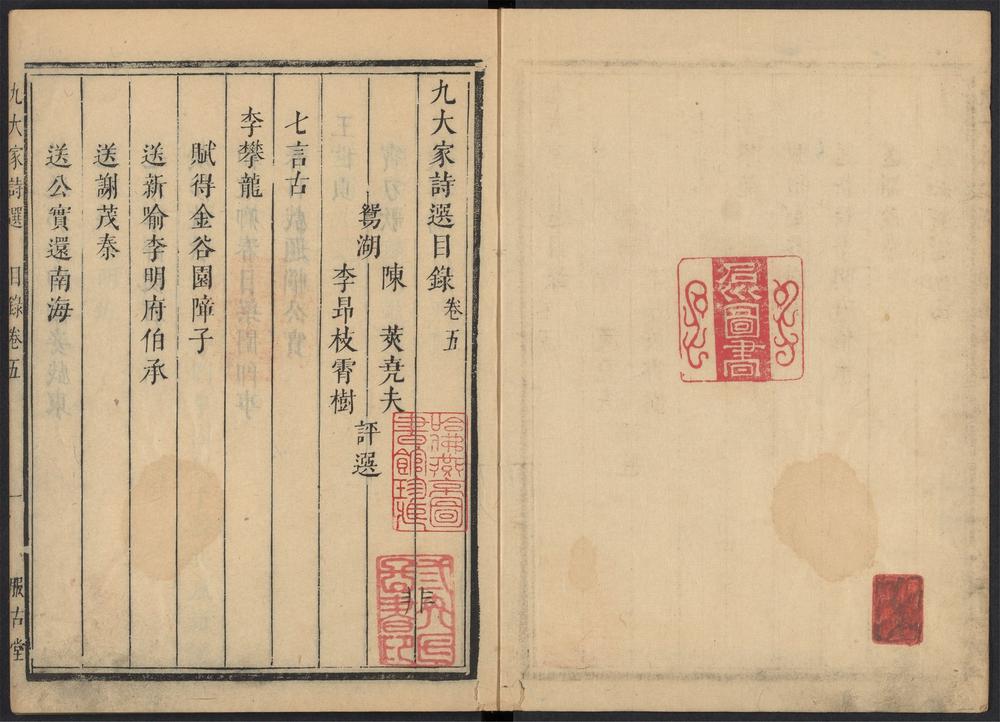 九大家詩選目錄 卷五
鴛湖
陳 莢堯夫
李昂枝霄樹
評選
七言古
李攀龍
賦得金谷園障子
送新喻李明府伯承
送謝茂秦
送公實還南海
九大家詩選 目錄卷五 一 服古堂
哈佛燕
圖書館珍藏
圖書